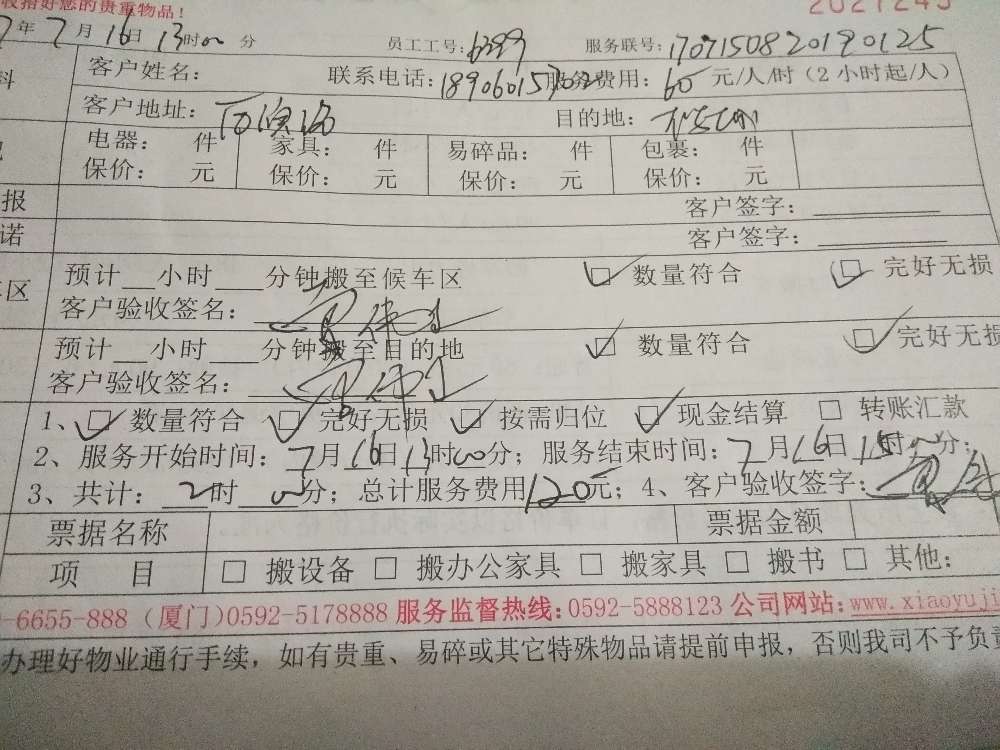 收拾好您的贵重物品！ 2021245
7年7月16日13时00分 员工工号：6399 服务联号：17071508 20190125
客户姓名： 联系电话：189060153 服务费用：60元/人/时（2小时起/人）
客户地址： 目的地：
电器： 件 家具： 件 易碎品： 件 包裹： 件
保价： 元 保价： 元 保价： 元 保价： 元
报 客户签字：
诺 客户签字：
预计__小时____分钟搬至候车区 ☑ 数量符合 ☑ 完好无损
区 客户验收签名：
预计__小时____分钟搬至目的地 ☑ 数量符合 ☑ 完好无损
客户验收签名：
1、☑ 数量符合 ☑ 完好无损 ☑ 按需归位 ☑ 现金结算 □ 转账汇款
2、服务开始时间：7月16日13时00分；服务结束时间：7月16日15时00分；
3、共计：2时00分；总计服务费用120元；4、客户验收签字：
票据名称 票据金额
项 目 □ 搬设备 □ 搬办公家具 □ 搬家具 □ 搬书 □ 其他：
-6655-888（厦门）0592-5178888 服务监督热线：0592-5888123 公司网站：www.xiaoyuji
办理好物业通行手续，如有贵重、易碎或其它特殊物品请提前申报，否则我司不予负责